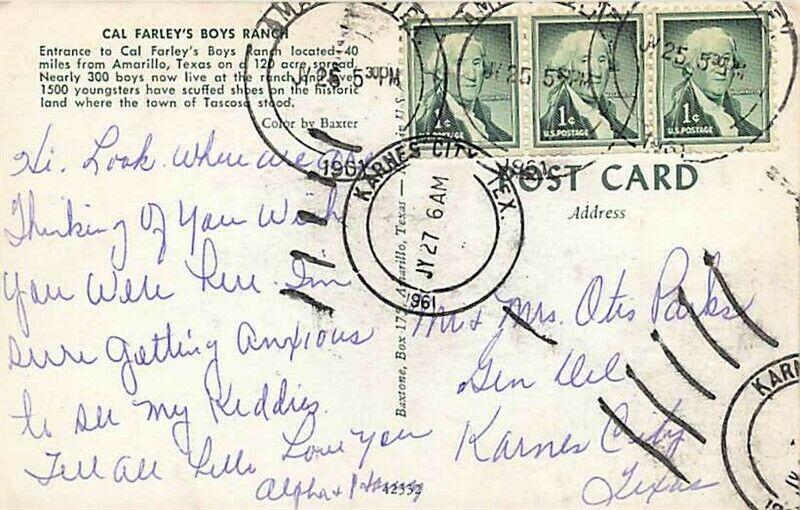 CAL FARLEY'S BOYS RANCH
Entrance to Cal Farley's Boys Ranch located 40
miles from Amarillo, Texas on a 120 acre spread.
Nearly 300 boys now live at the ranch and over
1500 youngsters have scuffed shoes on the historic
land where the town of Tascosa stood.
Color by Baxter
Hi. Look Where we are
Thinking Of You Wish
You Were Here. I'm
Sure Getting Anxious
to see My Kiddies.
Tell All Hello Love You
Alpha &
42332
Baxtone, Box 175, Amarillo, Texas
JY 25 5 30 PM
1961
JY 25 5 30 PM
1961
JY 25 5 30 PM
1961
1¢
U.S. POSTAGE
1¢
U.S. POSTAGE
1¢
U.S. POSTAGE
KARNES CITY, TEX.
JY 27 6 AM
1961
POST CARD
Address
Mr & Mrs. Otis Parks
Gen Del
Karnes City
Texas
KARNE
JY